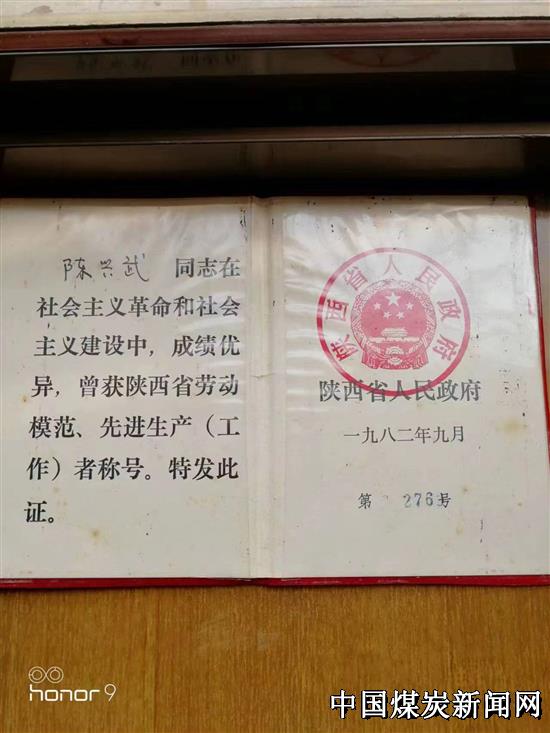 陈兴武 同志在
社会主义革命和社会
主义建设中，成绩优
异，曾获陕西省劳动
模范、先进生产（工
作）者称号。特发此
证。
陕西省人民政府
陕西省人民政府
一九八二年九月
第 276号
honor 9
中国煤炭新闻网